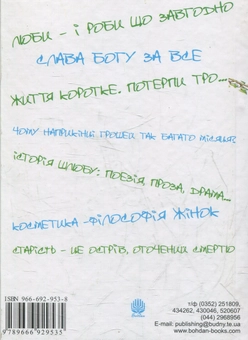 ЛЮБИ - І РОБИ ЩО ЗАВГОДНО
СЛАВА БОГУ ЗА ВСЕ
ЖИТТЯ КОРОТКЕ. ПОТЕРПИ ТРО...
ЧОМУ НАПРИКІНЦІ ГРОШЕЙ ТАК БАГАТО МІСЯЦЯ?
ІСТОРІЯ ШЛЮБУ: ПОЕЗІЯ, ПРОЗА, ДРАМА...
КОСМЕТИКА - ФІЛОСОФІЯ ЖІНОК
СТАРІСТЬ - ЦЕ ОСТРІВ, ОТОЧЕНИЙ СМЕРТЮ
ISBN 966-692-953-8
9789666929535
т/ф (0352) 251809,
434262, 430046, 520607
(044) 2968956
E-mail: publishing@budny.te.ua
www.bohdan-books.com